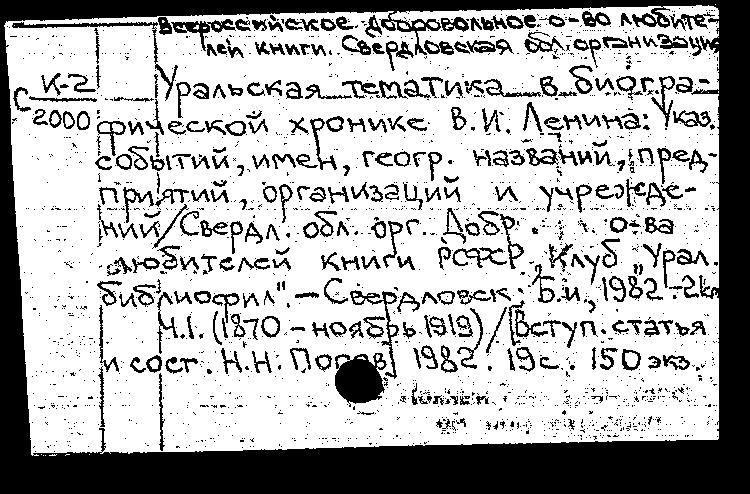 Всероссийское добровольное о-во любите-
лей книги. Свердловская обл. организация
К-2
С 2000
Уральская тематика в биогра-
фической хронике В.И. Ленина: Указ.
событий, имен, геогр. названий, пред-
приятий, организаций и учрежде-
ний/Свердл. обл. орг. Добр. о-ва
любителей книги РСФСР, Клуб "Урал.
библиофил". – Свердловск: Б.и., 1982 – 2 кн
Ч.1. (1870 – ноябрь 1919)/[Вступ. статья
и сост. Н.Н. Попов] 1982. 19 с. 150 экз.